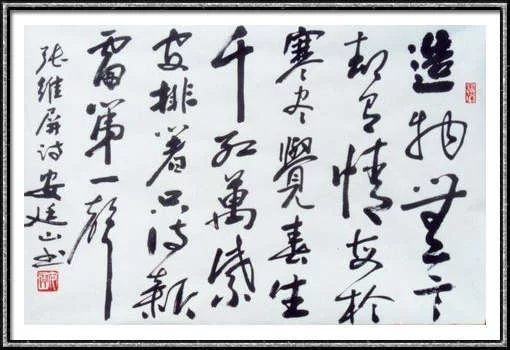 造物無言
却有情每於
寒尽覺春生
千红萬紫
安排著只待新
雷第一声
张维屏诗安廷山书